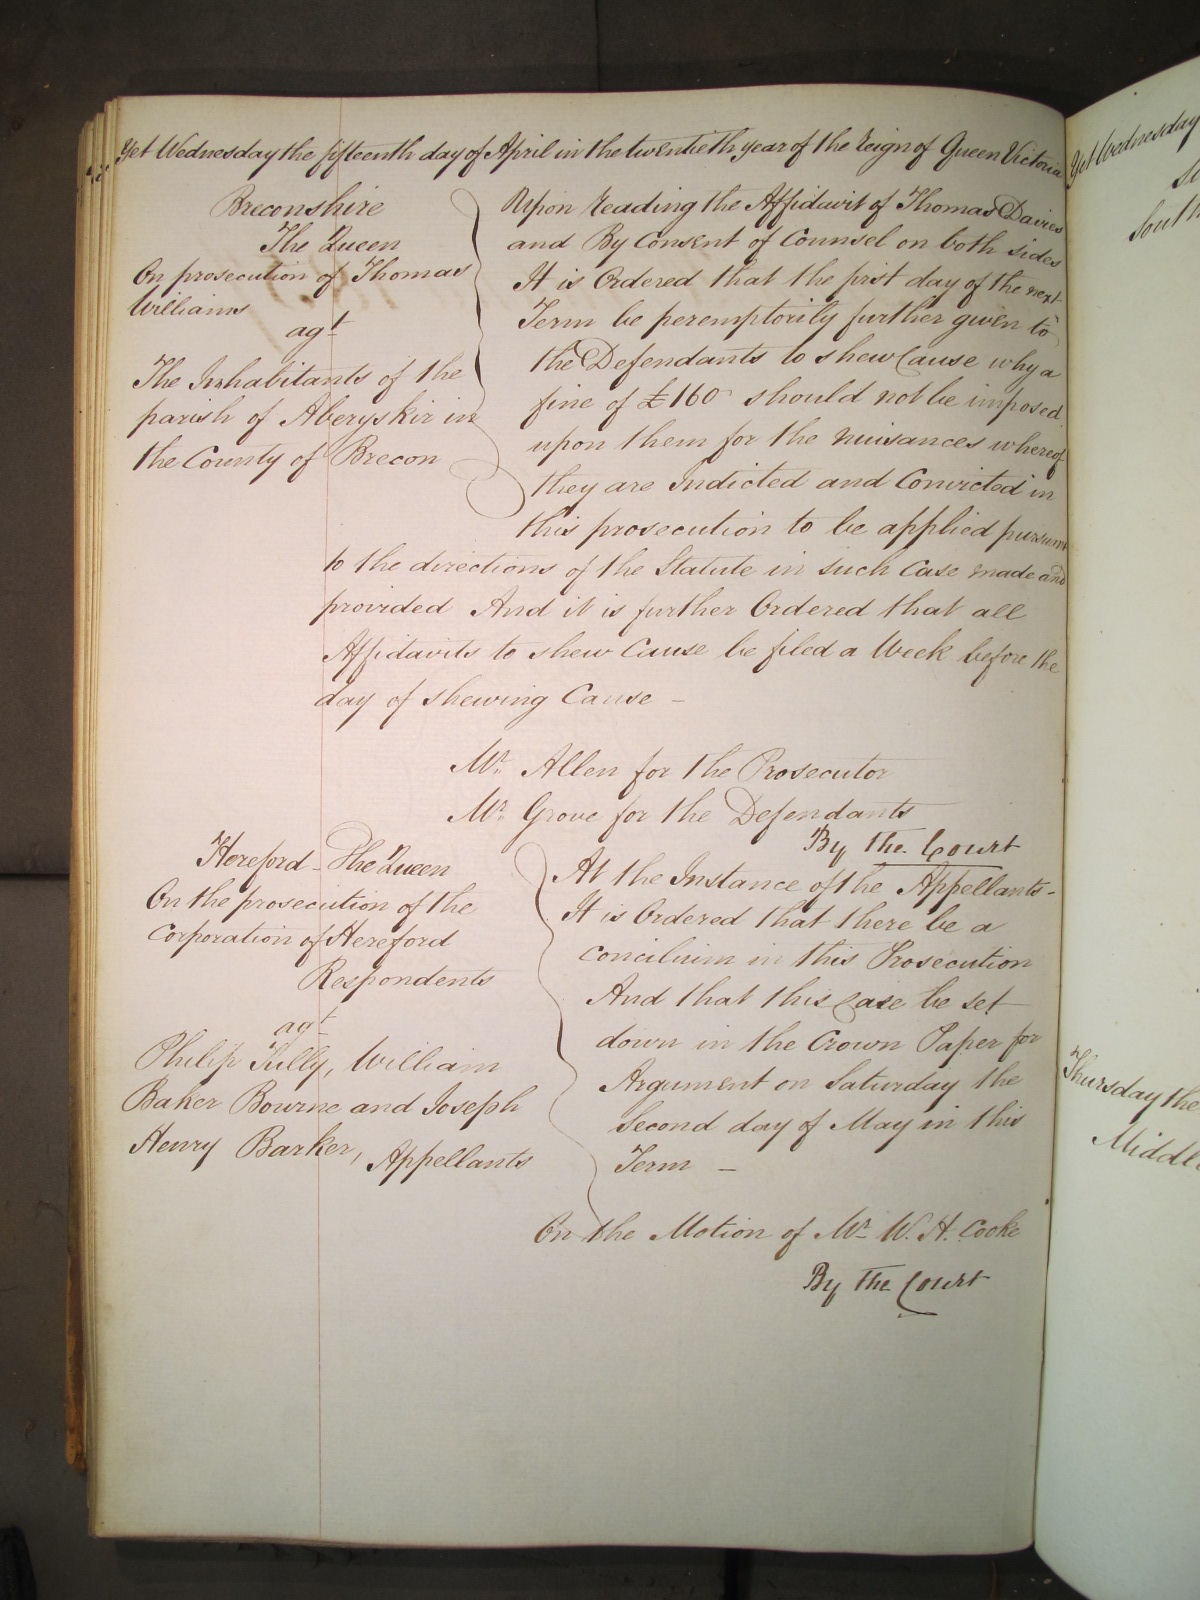 Yet Wednesday the fifteenth day of April in the twentieth year of the Reign of Queen Victoria
Breconshire
The Queen
On prosecution of Thomas
Williams
agt
The Inhabitants of the
parish of Aberyskir in
the County of Brecon
Upon reading the Affidavit of Thomas Davies
and By Consent of Counsel on both sides
It is Ordered that the first day of the next
Term be peremptorily further given to
the Defendants to shew Cause why a
fine of £160 should not be imposed
upon them for the nuisances whereof
they are Indicted and Convicted in
this prosecution to be applied pursuant
to the directions of the Statute in such Case made and
provided And it is further Ordered that all
Affidavits to shew Cause be filed a Week before the
day of shewing Cause —
Mr. Allen for the Prosecutor
Mr. Grove for the Defendants
By the Court
Hereford - The Queen
On the prosecution of the
Corporation of Hereford
Respondents
agt
Philip Tully, William
Baker Bourne and Joseph
Henry Barker,
Appellants
At the Instance of the Appellants -
It is Ordered that there be a
concilium in this Prosecution
And that this Case be set
down in the Crown Paper for
Argument on Saturday the
Second day of May in this
Term —
On the Motion of Mr. W. H. Cooke
By the Court
Yet Wednesday
South
Thursday the